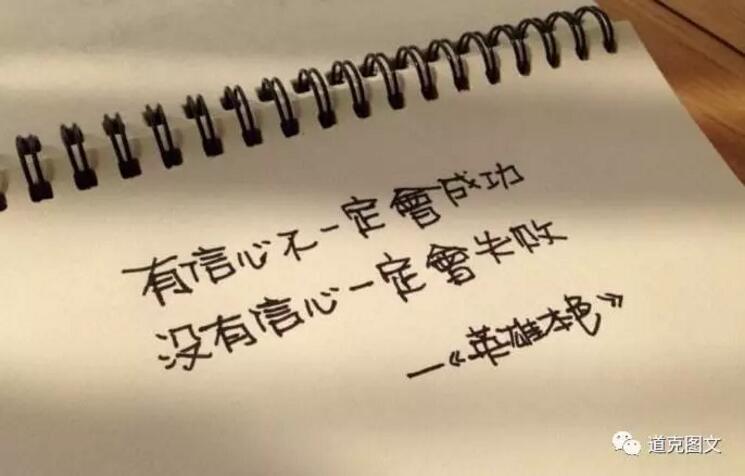 有信心不一定會成功
没有信心一定會失敗
—《英雄本色》
道克图文